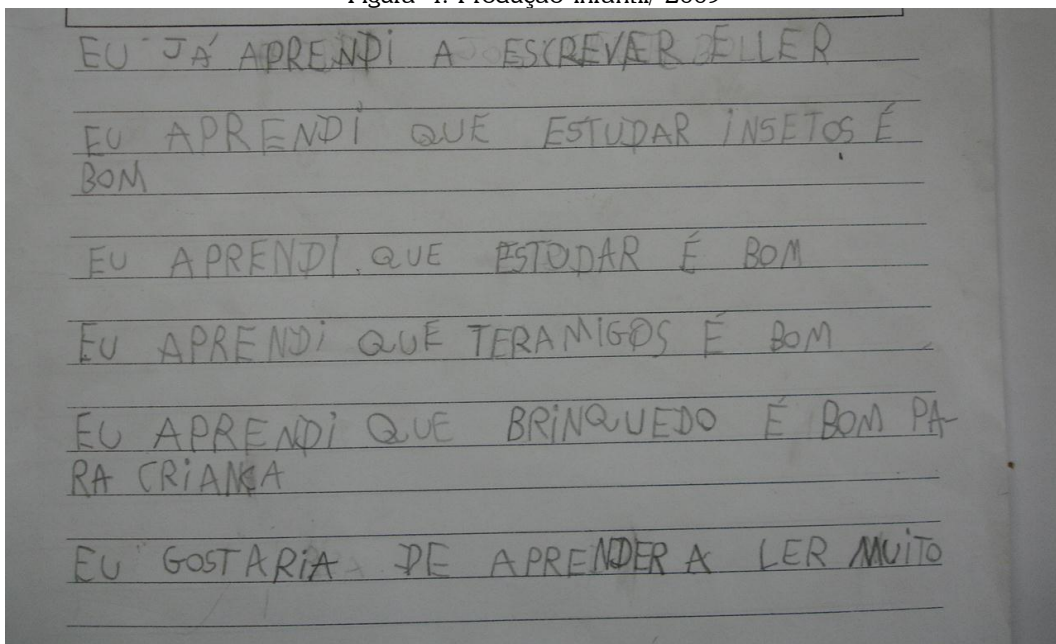 Figura 4: Produção infantil/ 2009
EU JÁ APRENDI A ESCREVER E LLER
EU APRENDI QUE ESTUDAR INSETOS É
BOM
EU APRENDI QUE ESTODAR É BOM
EU APRENDI QUE TERAMIGOS É BOM
EU APRENDI QUE BRINQUEDO É BOM PA-
RA CRIANÇA
EU GOSTARIA DE APRENDER A LER MUITO